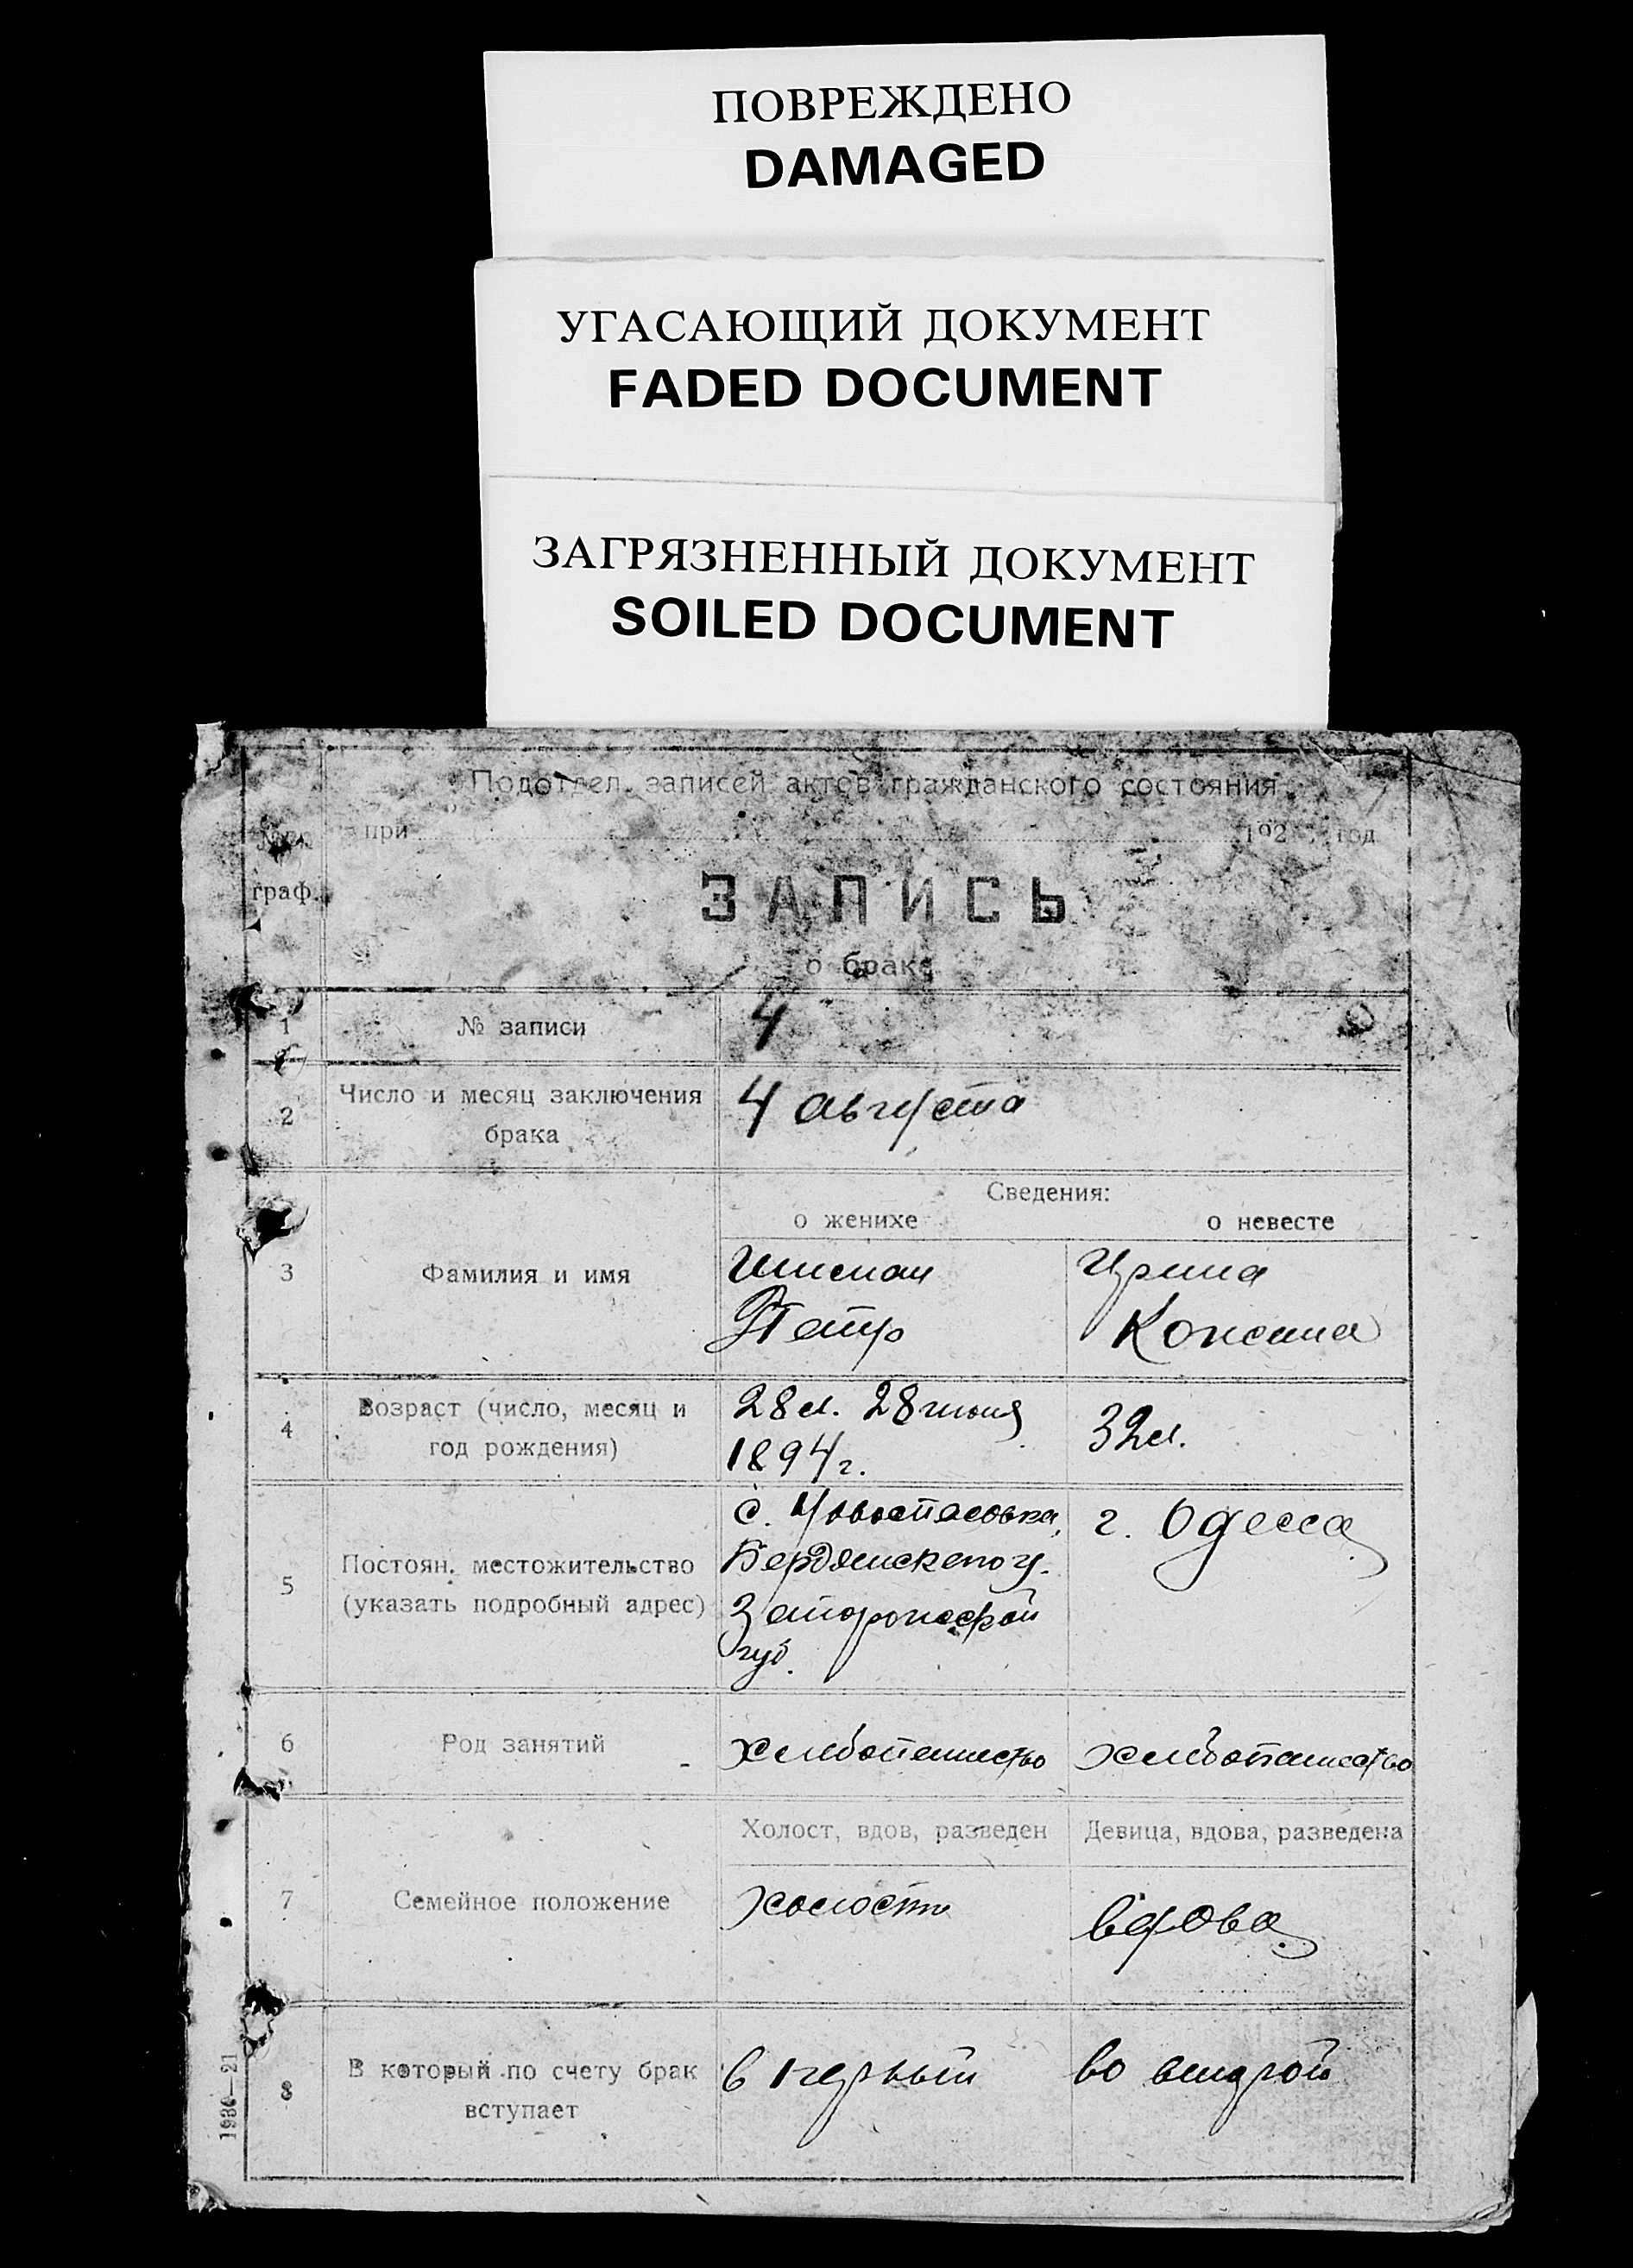 ПОВРЕЖДЕНО
DAMAGED
УГАСАЮЩИЙ ДОКУМЕНТ
FADED DOCUMENT
ЗАГРЯЗНЕННЫЙ ДОКУМЕНТ
SOILED DOCUMENT
Подотдел записей актов гражданского состояния
при 192 год
граф.
ЗАПИСЬ
о браке
1 № записи 4
2 Число и месяц заключения брака 4 августа
Сведения:
о женихе о невесте
3 Фамилия и имя
Ирина
Петр
4 Возраст (число, месяц и
год рождения)
28 л. 28 июня
1894 г.
32 л.
5 Постоян. местожительство
(указать подробный адрес)
с. Новоспасовка,
Бердянского у.
Запорожской
губ.
г. Одесса
6 Род занятий хлебопашество хлебопашество
Холост, вдов, разведен Девица, вдова, разведена
7 Семейное положение холост вдова
8 В который по счету брак
вступает
в первый во второй